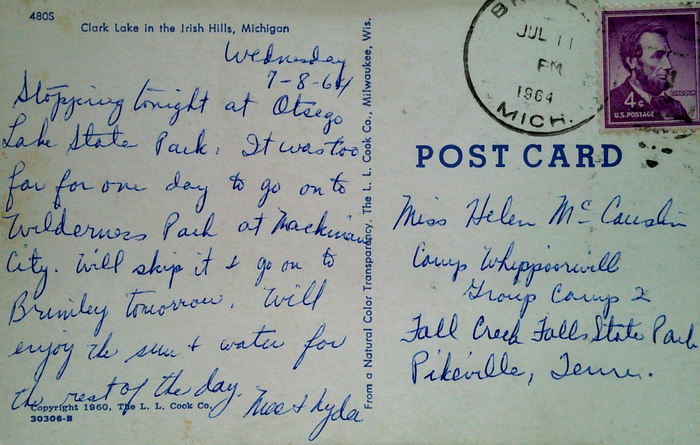 480S
Clark Lake in the Irish Hills, Michigan
Wednesday
7-8-64
Stopping tonight at Otsego
Lake State Park. It was too
far for one day to go on to
Wilderness Park at Mackinaw
City. Will skip it & go on to
Brimley tomorrow. Will
enjoy the sun & water for
the rest of the day.
Mae & Lyda
Copyright 1960, The L. L. Cook Co.
30306-B
From a Natural Color Transparency, The L. L. Cook Co., Milwaukee, Wis.
JUL 11
PM
1964
MICH.
LINCOLN
4¢
U.S. POSTAGE
POST CARD
Miss Helen McCauslin
Camp Whippoorwill
Group Camp 2
Fall Creek Falls State Park
Pikeville, Tenn.